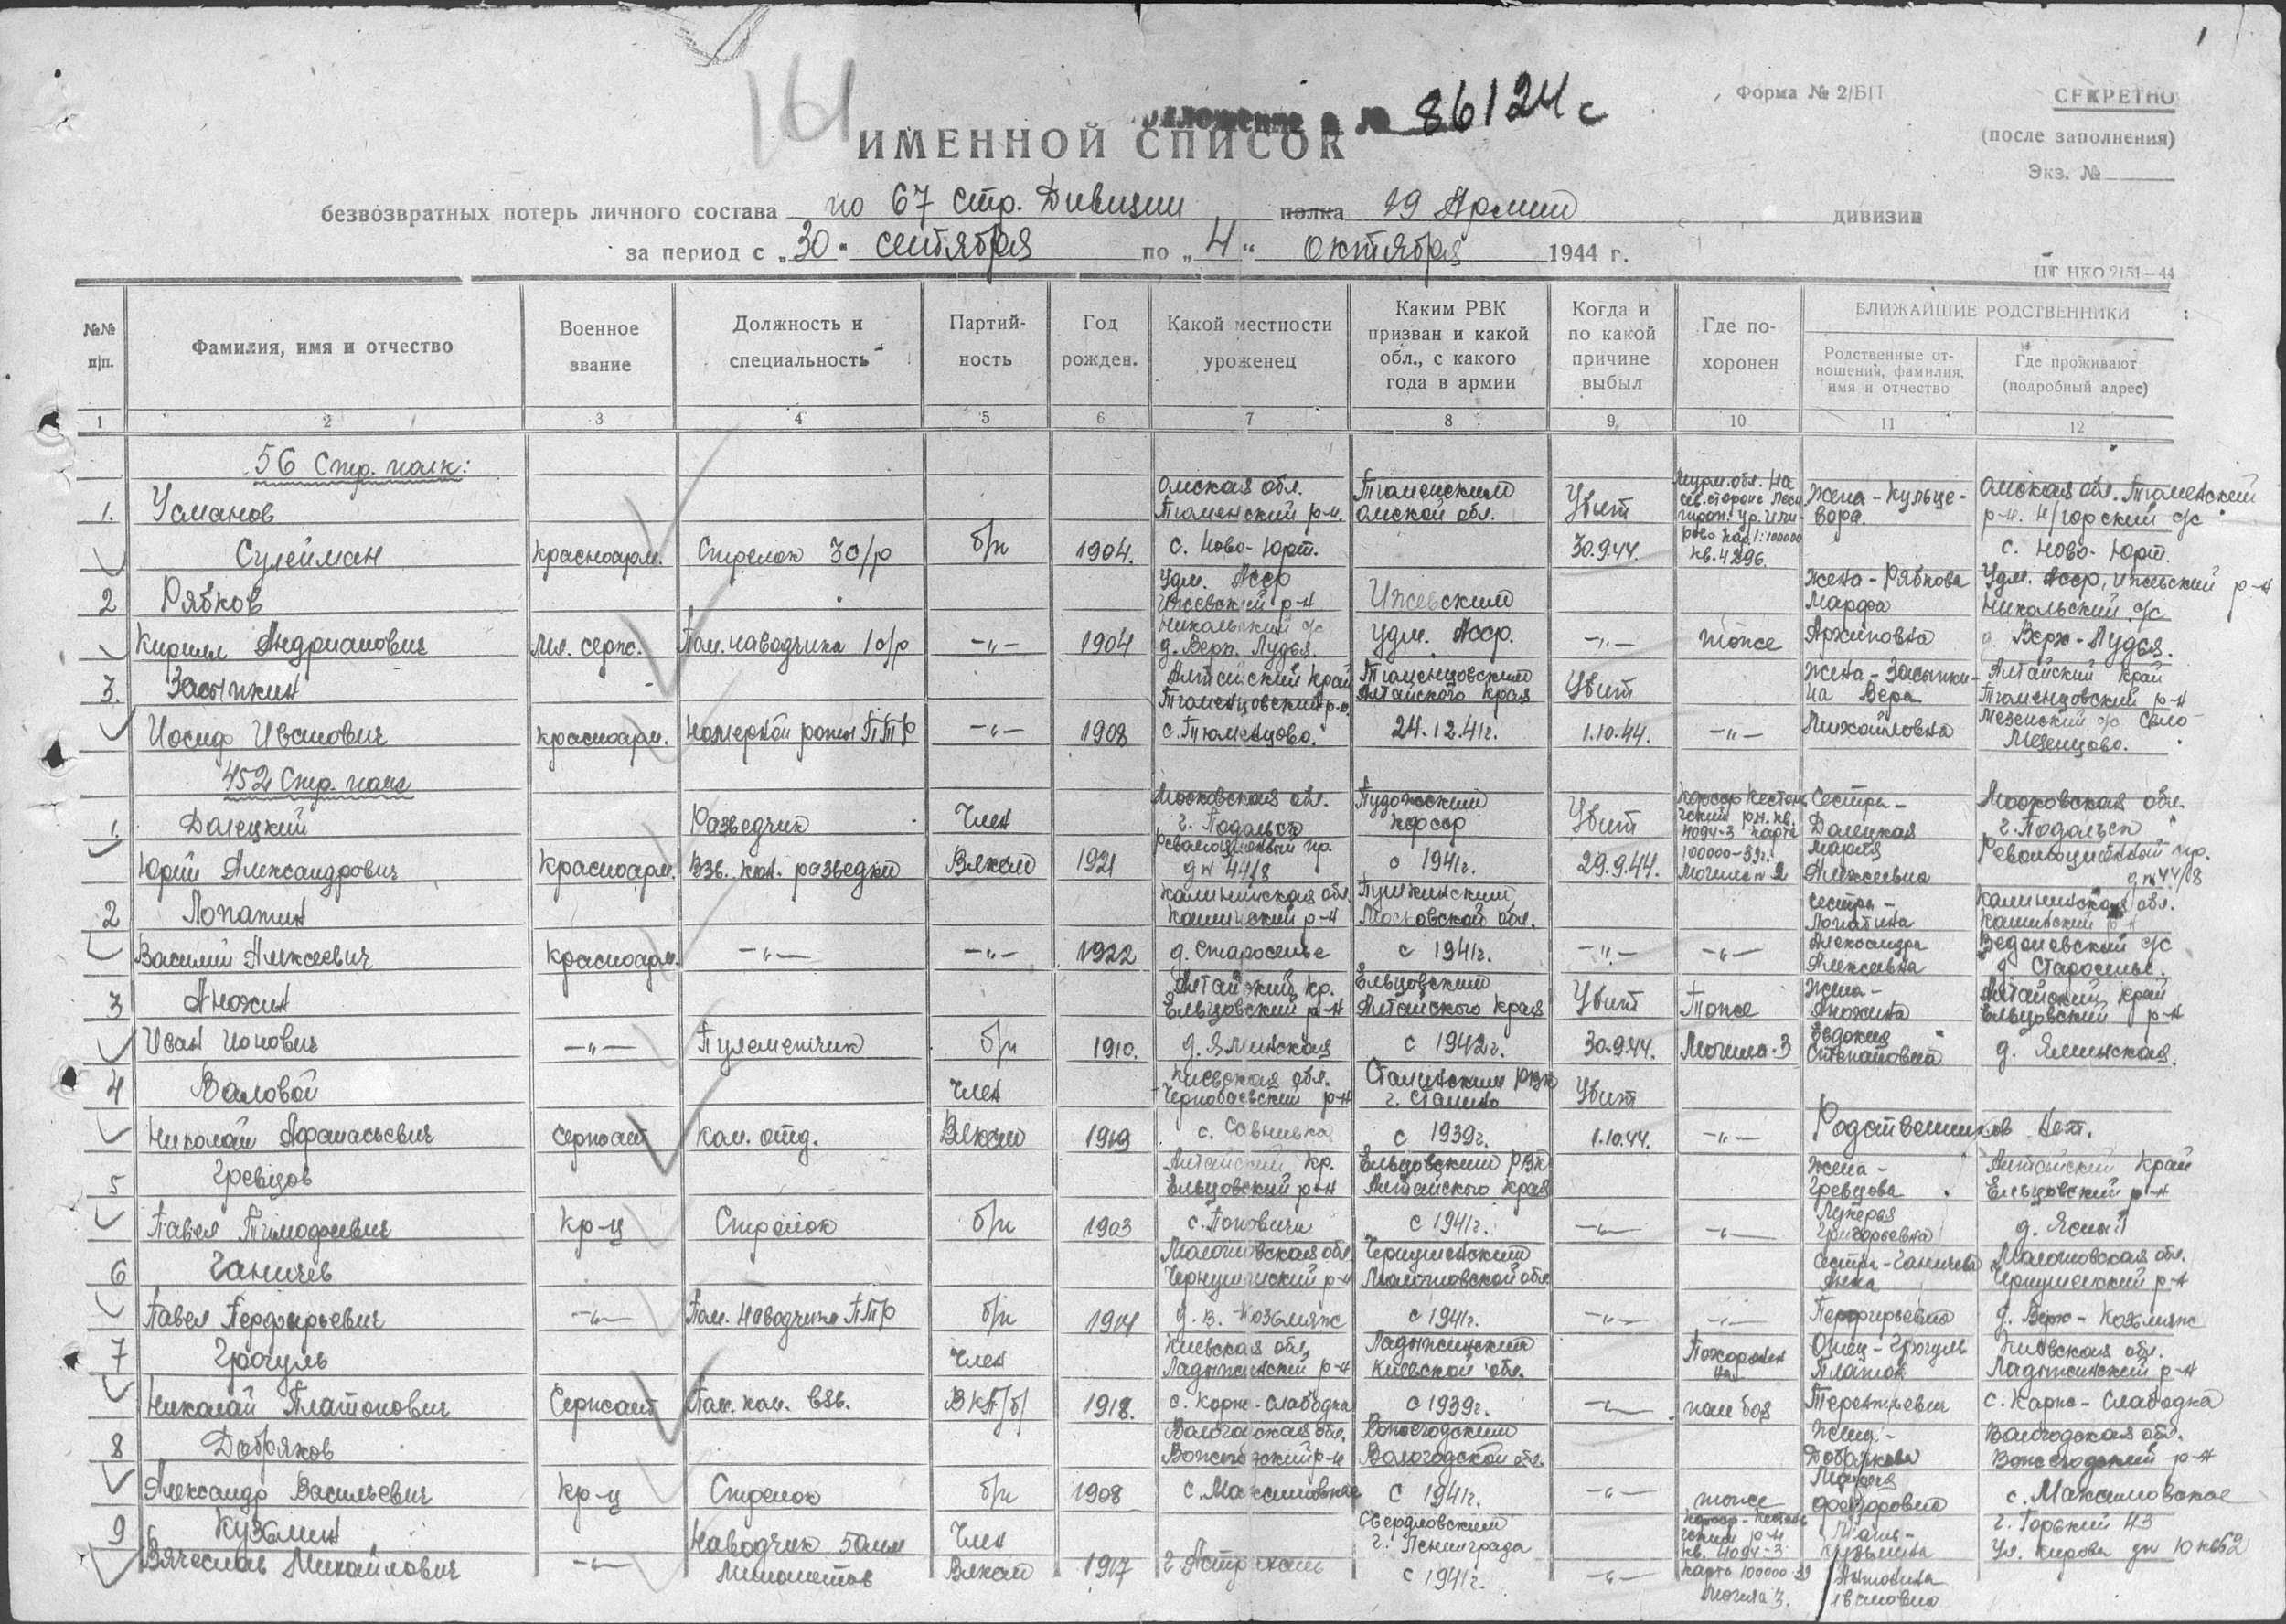 161
86124с
ИМЕННОЙ СПИСОК
Форма № 2/БП
СЕКРЕТНО
(после заполнения)
Экз. №
безвозвратных потерь личного состава по 67 стр. Дивизии полка 19 Армии дивизии
за период с „30" сентября по „4" октября 1944 г.
ЦТ НКО 2151—44
№№ п/п.
Фамилия, имя и отчество
Военное звание
Должность и специальность
Партий-ность
Год рожден.
Какой местности уроженец
Каким РВК призван и какой обл., с какого года в армии
Когда и по какой причине выбыл
Где по-хоронен
БЛИЖАЙШИЕ РОДСТВЕННИКИ
Родственные от-ношения, фамилия, имя и отчество
Где проживают (подробный адрес)
1 2 3 4 5 6 7 8 9 10 11 12
56 Стр. полк:
1. Усманов
Сулейман
красноарм. Стрелок б/п 1904.
Омская обл.
Тюменский р-н.
с. Ново-Юрт.
Тюменским
Омской обл.
Убит
30.9.44.
кв. 4296.
Жена - Кульце-
вора.
Омская обл. Тюменский
р-н. с/с
с. Ново-Юрт.
2 Рябков
Кирилл Андрианович
мл. серж. Пом. наводчика -"- 1904
Удм. Асср
Ижевский р-н
Никольский с/с
д. Верх. Лудья.
Ижевским
Удм. Асср.
-"- тоже
Жена - Рябкова
Марфа
Архиповна
Удм. Асср, Ижевский р-н
Никольский с/с
д. Верх-Лудья.
3. Засыпкин
Иосиф Иванович
красноарм. Номерной ПТР -"- 1908
Алтайский край
Тюменцовский р-н.
с. Тюменцово.
Тюменцовским
Алтайского края
24.12.41г.
Убит
1.10.44.
-"-
Жена - Засыпки-
на Вера
Михайловна
Алтайский край
Тюменцовский р-н
Мезенский с/с село
Мезенцово.
452 Стр. полк
1. Далецкий
Юрий Александрович
Красноарм.
Разведчик
Взв. кон. разведки
Член
Влксм
1921
Московская обл.
г. Подольск
Революционный пр.
д № 44/8
Пудожский
Кфсср
с 1941г.
Убит
29.9.44.
Могила № 2
Сестра -
Далецкая
Мария
Алексеевна
Московская обл.
г. Подольск
Революционный пр.
д № 44/08
2 Лопатин
Василий Алексеевич
Красноарм. -"- -"- 1922
Калининская обл.
Кашинский р-н
д. Староселье
Московской обл.
с 1941г.
-"- -"-
сестра -
Лопатина
Александра
Алексеевна
Калининская обл.
Кашинский р-н
с/с
д. Староселье.
3 Анохин
Иван Ионович
-"- Пулеметчик б/п 1910.
Алтайский кр.
Ельцовский р-н
д. Яминская
Ельцовским
Алтайского края
с 1942г.
Убит
30.9.44.
Тоже
Могила-3
Жена -
Анохина
Евдокия
Степановна
Алтайский край
Ельцовский р-н
д. Яминская.
4 Валовой
Николай Афанасьевич
Сержант Ком. отд.
Член
Влксм
1919
Киевская обл.
Чернобаевский р-н
с. Савковка
Сталинским РВК
г. Сталино
с 1939г.
Убит
1.10.44.
-"-
Родственников нет.
5 Гревцов
Павел Тимофеевич
Кр-ц Стрелок б/п 1903
Алтайский кр.
Ельцовский р-н
Ельцовским РВК
Алтайского края
с 1941г.
-"- -"-
Жена -
Гревцова
Лукерья
Григорьевна
Алтайский край
Ельцовский р-н
6 Ганичев
Павел Порфирьевич
-"- Пом. наводчика ПТР б/п 1914
Молотовская обл.
Чернушинский р-н
Чернушинский
Молотовской обл.
с 1941г.
-"- -"-
Сестра - Ганичева
Анна
Порфирьевна
Молотовская обл.
Чернушенский р-н
7 Грогуль
Николай Платонович
Сержант Пом. ком. взв.
Член
ВКП/б/
1918.
Киевская обл.
Ладыжинский р-н
с. Корж-Слабодка
Ладыжинским
Киевской обл.
с 1939г.
-"-
Похоронен
на
поле боя
Отец - Грогуль
Платон
Терентьевич
Киевская обл.
Ладыжинский р-н
с. Карж-Слабодка
8 Добряков
Александр Васильевич
Кр-ц Стрелок б/п 1908
Вологодская обл.
Вожегодский р-н
с. Максимовское
Вожегодским
Вологодской обл.
с 1941г.
-"-
тоже
Жена -
Добрякова
Федоровна
Вологодская обл.
Вожегодский р-н
с. Максимовское
9 Кузьмин
Вячеслав Михайлович
-"-
Наводчик 50мм
Минометов
Член
Влксм
1917
г. Астрахань
Свердловским
г. Ленинграда
с 1941г.
-"-
кв. 4094-3
Могила 3.
Мать -
Кузьмина
Антонина
Ивановна
г. Горький 43
Ул. Кирова